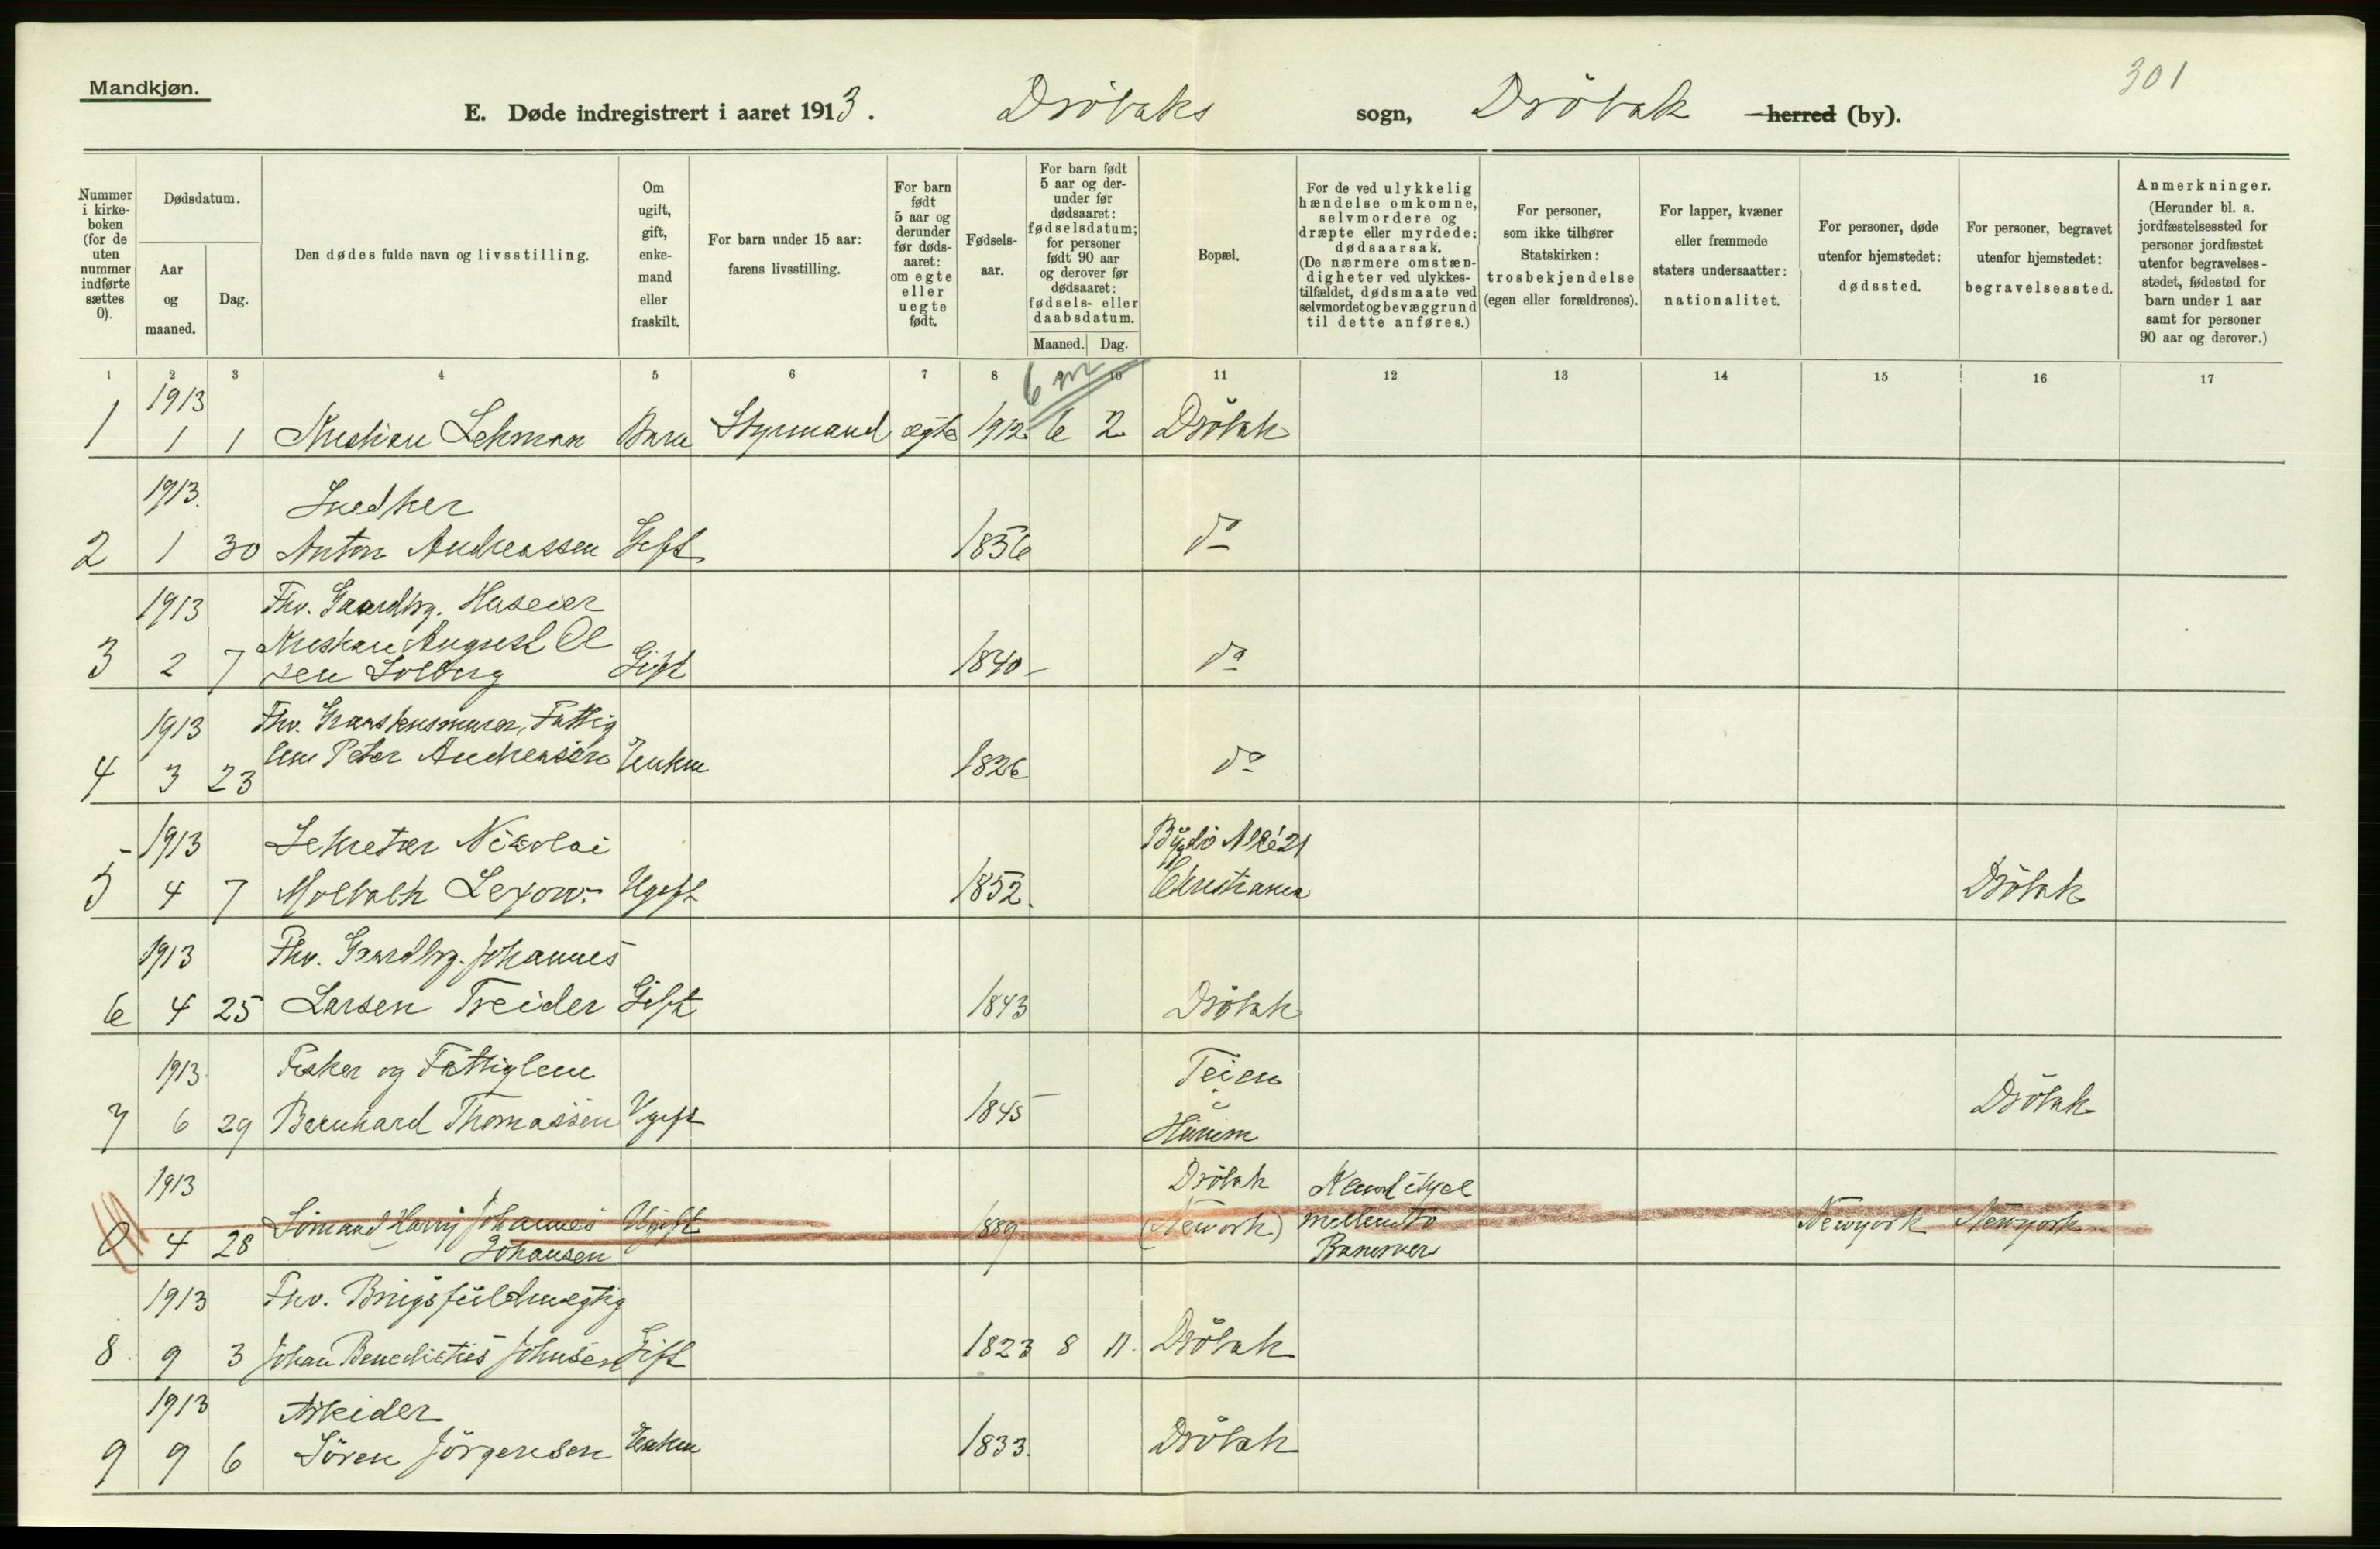 301
Mandkjøn.
E. Døde indregistrert i aaret 1913. Dröbaks sogn, Dröbak herred (by).
Nummer
i kirke-
boken
(for de
uten
nummer
indførte
sættes
0).
Dødsdatum.
Aar
og
maaned.
Dag.
Den dødes fulde navn og livsstilling.
Om
ugift,
gift,
enke-
mand
eller
fraskilt.
For barn under 15 aar:
farens livsstilling.
For barn
født
5 aar og
derunder
før døds-
aaret:
om egte
eller
uegte
født.
Fødsels-
aar.
For barn født
5 aar og der-
under før
dødsaaret:
fødselsdatum;
for personer
født 90 aar
og derover før
dødsaaret:
fødsels- eller
daabsdatum.
Maaned. Dag.
Bopæl.
For de ved ulykkelig
hændelse omkomne,
selvmordere og
dræpte eller myrdede:
dødsaarsak.
(De nærmere omstæn-
digheter ved ulykkes-
tilfældet, dødsmaate ved
selvmordet og bevæggrund
til dette anføres.)
For personer,
som ikke tilhører
Statskirken:
trosbekjendelse
(egen eller forældrenes).
For lapper, kvæner
eller fremmede
staters undersaatter:
nationalitet.
For personer, døde
utenfor hjemstedet:
dødssted.
For personer, begravet
utenfor hjemstedet:
begravelsessted.
Anmerkninger.
(Herunder bl. a.
jordfæstelsessted for
personer jordfæstet
utenfor begravelses-
stedet, fødested for
barn under 1 aar
samt for personer
90 aar og derover.)
1 2 3 4 5 6 7 8 9 10 11 12 13 14 15 16 17
6 m
1913
1 1 1 Kristian Lehman Barn Styrmand ægte 1912 6 2 Dröbak
1913. Snedker
2 1 30 Anton Andreassen Gift 1836 do
1913 Fhv. Gaardbrg. Huseier
Kristian August Ol
3 2 7 sen Solberg Gift 1840 do
1913 Fhv. Graastensmurer, Fattig
lem Peter Andreasen Enkm
4 3 23 1826 do
1913 Sekretær Nicolai Bygdö Allé 21
5 4 7 Molbach Lexow Ugift 1852. Christiania Dröbak
1913 Fhv. Gaardbrg. Johannes
6 4 25 Larsen Treider Gift 1843 Dröbak
1913 Fisker og Fattiglem Teien
7 6 29 Bernhard Thomassen Ugift 1845 i Dröbak
Hurum
1913 Dröbak Klemt ihjel
Sömand Harry Johannes Ugift 1889 (Newyork) mellem to Newyork Newyork
0 4 28 Johansen Banevogner
1913 Fhv. Brugsfuldmegtig
8 9 3 Johan Benedictus Johnsen Gift 1823 8 11. Dröbak
1913 Arbeider
9 9 6 Sören Jörgensen Enkm 1833. Dröbak